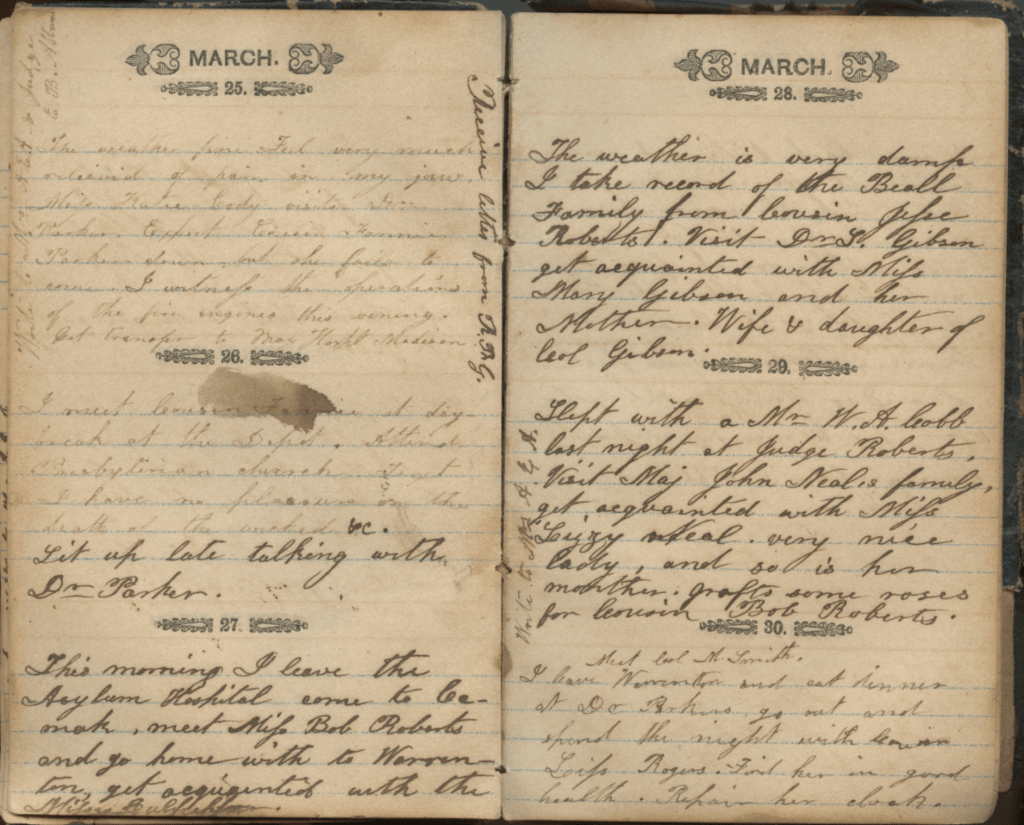 MARCH.
25.
The weather fine. Feel very much
relievid of pain in my jaw.
Miss Katie Cody visits Dr.
Parker. Expect Cousin Fannie
Parker down, but she fails to
come. I witness the operations
of the fire engines this evening.
Get transfer to Hospt Madison
Receive letter from A.B.G.
26.
I meet Cousin Fannie at day-
break at the Depot. Attend
Presbyterian church
I have no pleasure in the
death of the wicked &c.
Sit up late talking with
Dr Parker.
27.
This morning I leave the
Asylum Hospital come to Ca-
mak, meet Miss Bob Roberts
and go home with to Warren-
ton, get acquainted with the
Misses
MARCH.
28.
The weather is very damp
I take record of the Beall
Family from Cousin Jesse
Roberts. Visit Dr S. Gibson
get acquainted with Miss
Mary Gibson and her
Mother. Wife & daughter of
Col Gibson.
29.
Slept with a Mr W. A. Cobb
last night at Judge Roberts.
Visit Maj John Neal's family,
get acquainted with Miss
Lizzy Neal. very nice
lady, and so is her
monther. grafts some roses
for Cousin Bob Roberts.
Write to
30.
Meet Col M. Smith.
I leave Warrenton and eat dinner
at Dr Perkins, go out and
spend the night with Cousin
Rogers. Find her in good
health. Repair her clock.